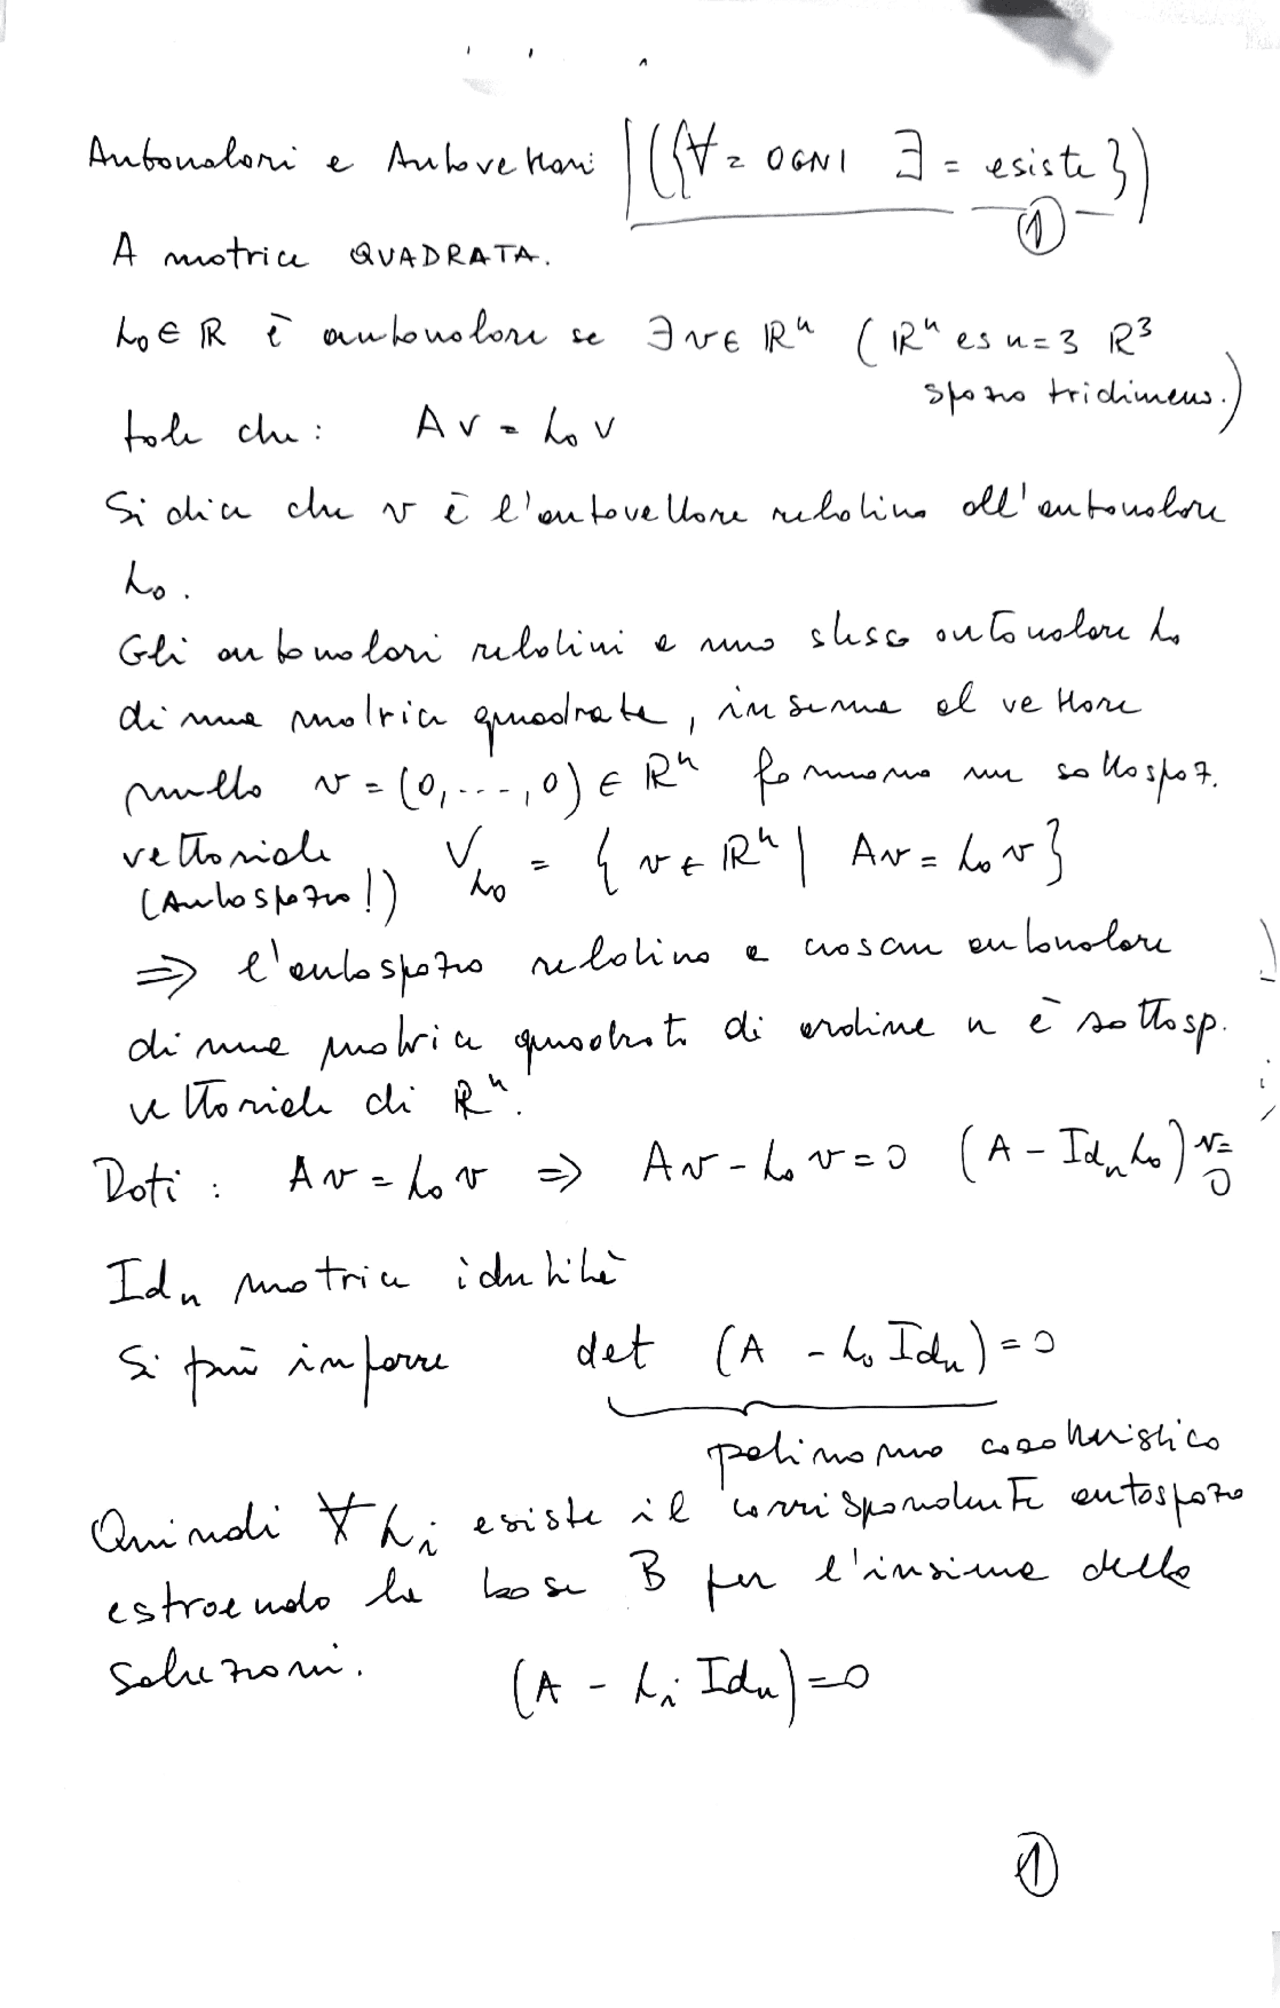 Autovalori e Autovettori | ({∀ = OGNI ∃ = esiste})
①
A matrice QUADRATA.
λ₀ ∈ ℝ è autovalore se ∃ v ∈ ℝⁿ (ℝⁿ es n=3 ℝ³
spazio tridimens.)
tale che: Av = λ₀ v
Si dice che v è l'autovettore relativo all'autovalore
λ₀.
Gli autovalori relativi a uno stesso autovalore λ₀
di una matrice quadrata, insieme al vettore
nullo v = (0,...,0) ∈ ℝⁿ formano un sottospaz.
vettoriale V_λ₀ = { v ∈ ℝⁿ | Av = λ₀ v }
(Autospazio!)
⇒ l'autospazio relativo a ciascun autovalore
di una matrice quadrata di ordine n è sottosp.
vettoriale di ℝⁿ.
Dati: Av = λ₀ v ⇒ Av - λ₀ v = 0 (A - Idₙ λ₀) v =
0
Idₙ matrice identità
Si può imporre det (A - λ₀ Idₙ) = 0
polinomio caratteristico
Quindi ∀ λᵢ esiste il corrispondente autospazio
estraendo la base B per l'insieme delle
soluzioni. (A - λᵢ Idₙ) = 0
①